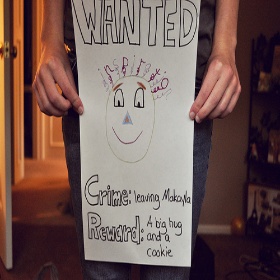 WANTED
Inspiration
Crime: leaving Makayla
Reward: A big hug
and a
cookie